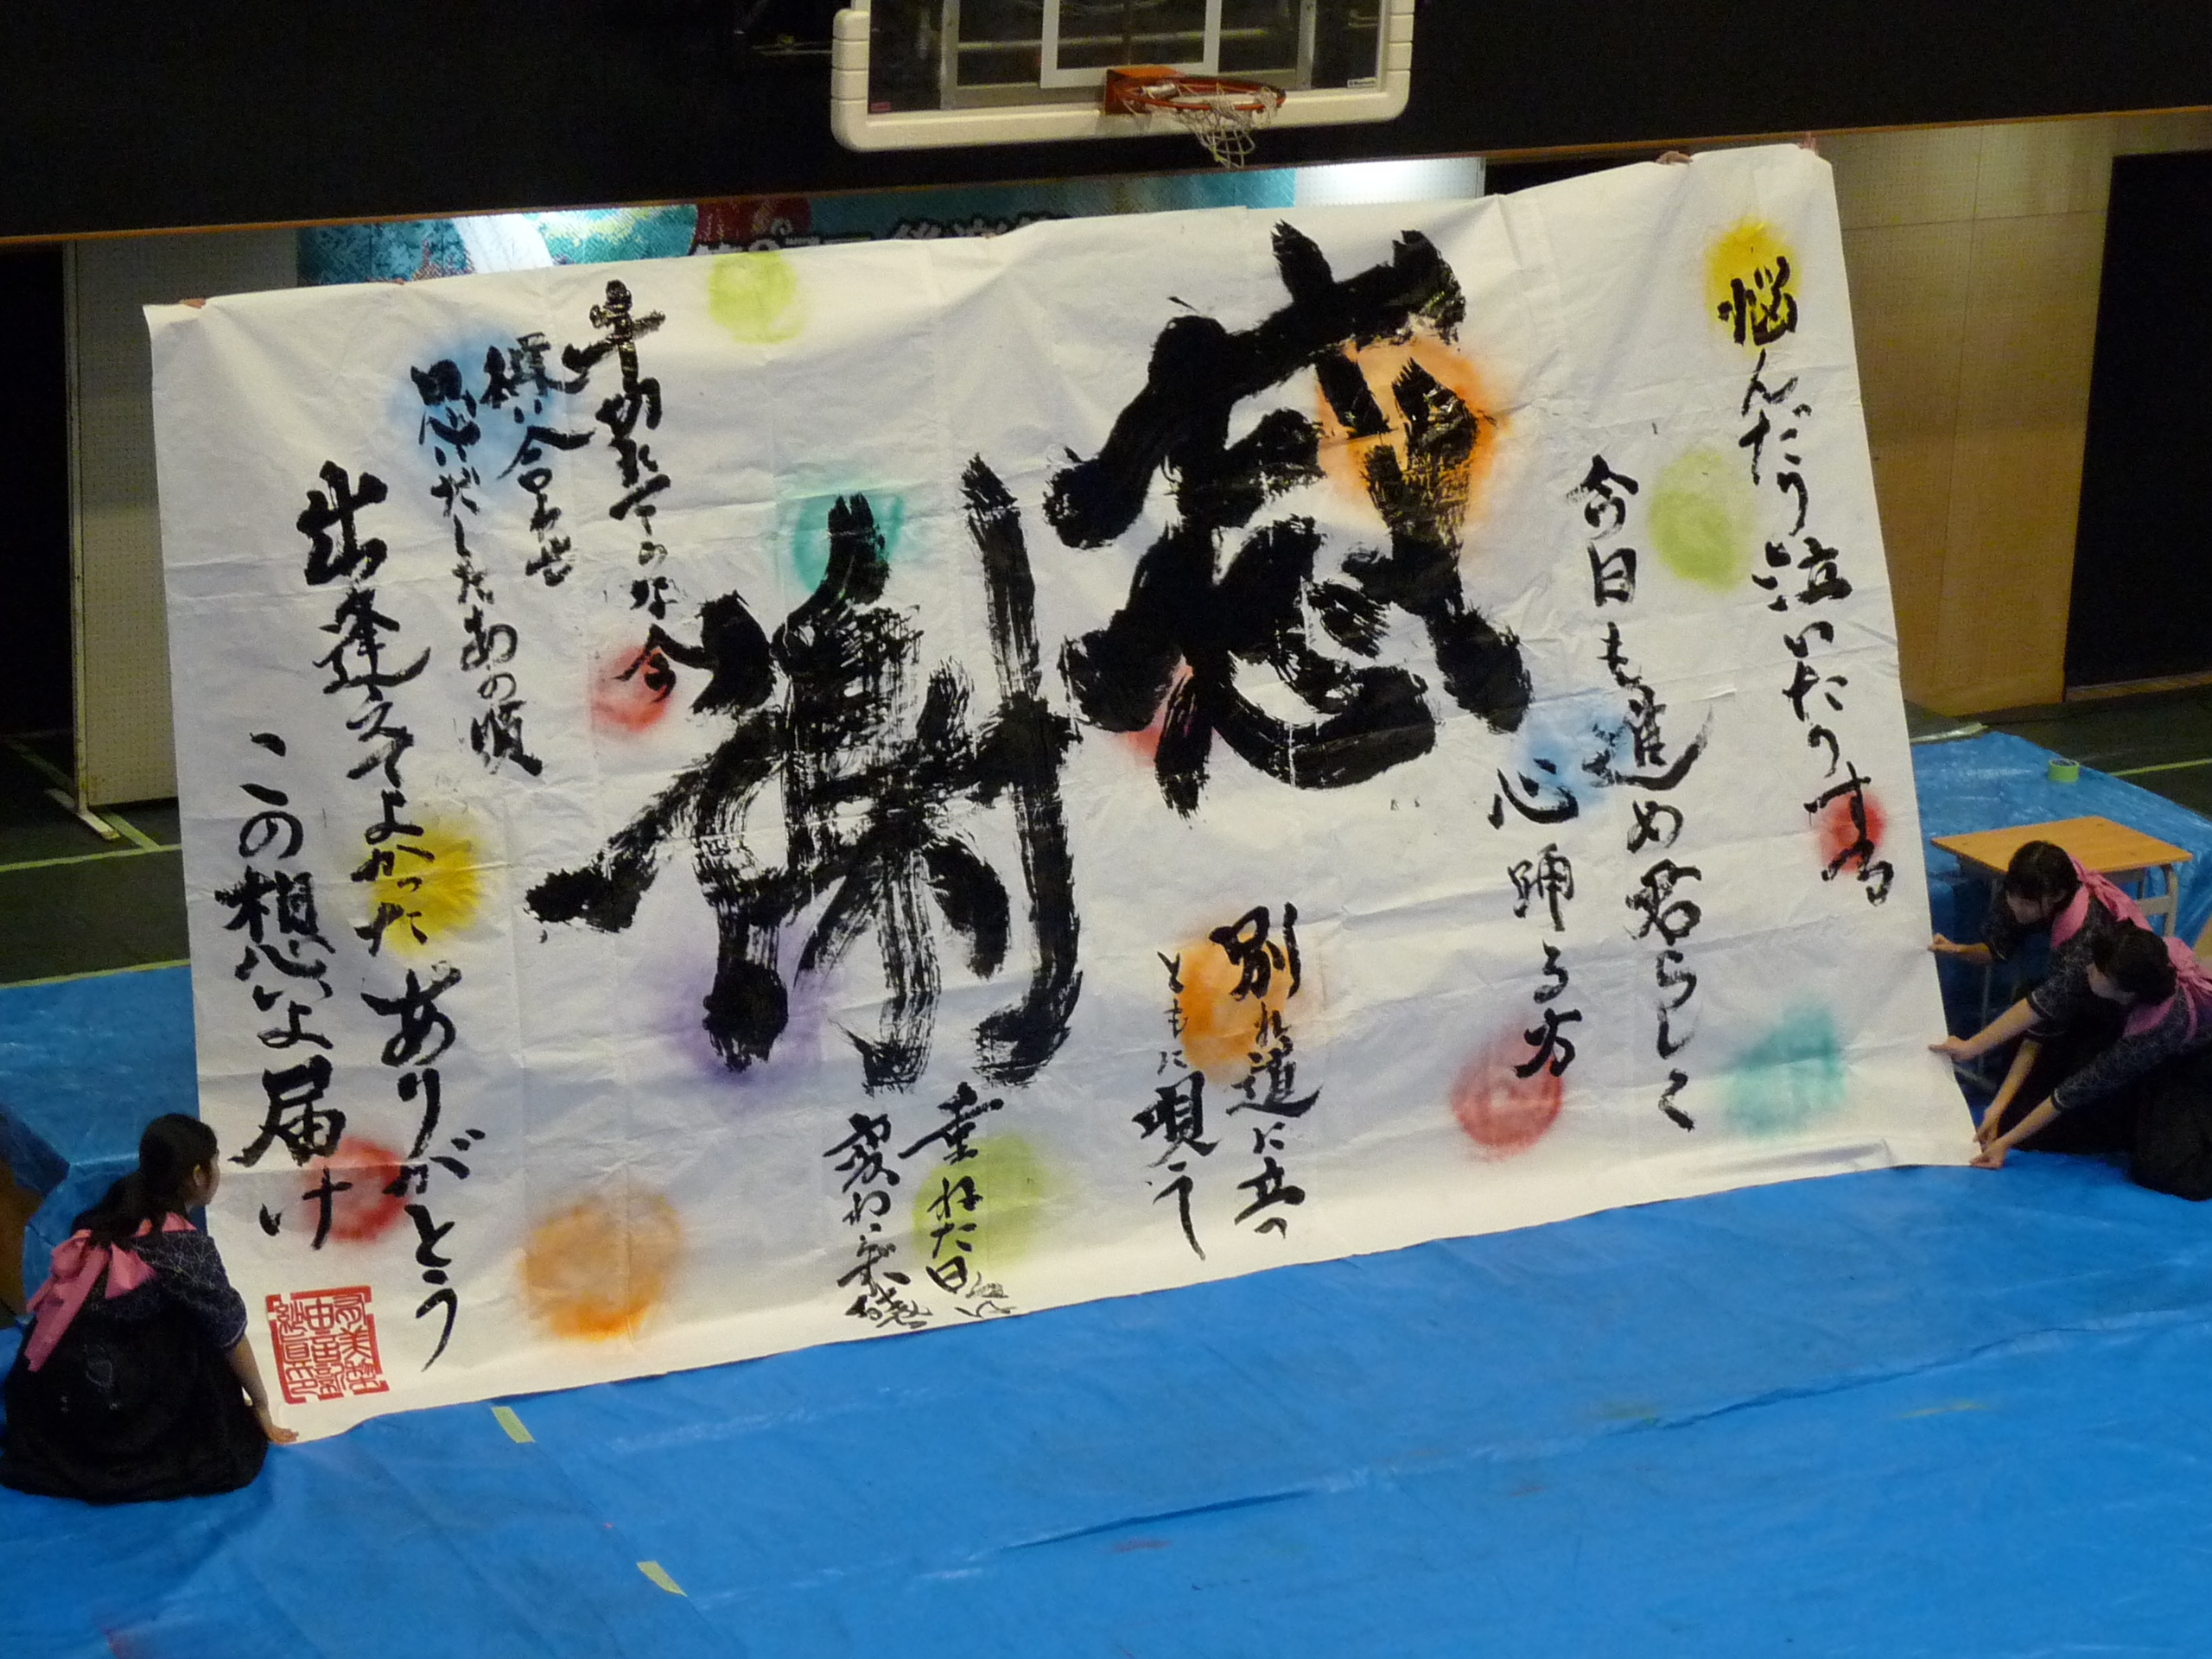 悩んだり泣いたりする
今日も進め君らしく
心踊る方
感謝
別れ道に立つ
ともに唄う
重ねた日
変わらず
今
合わせ
思いだしたあの頃
出逢えてよかった ありがとう
この想いよ届け